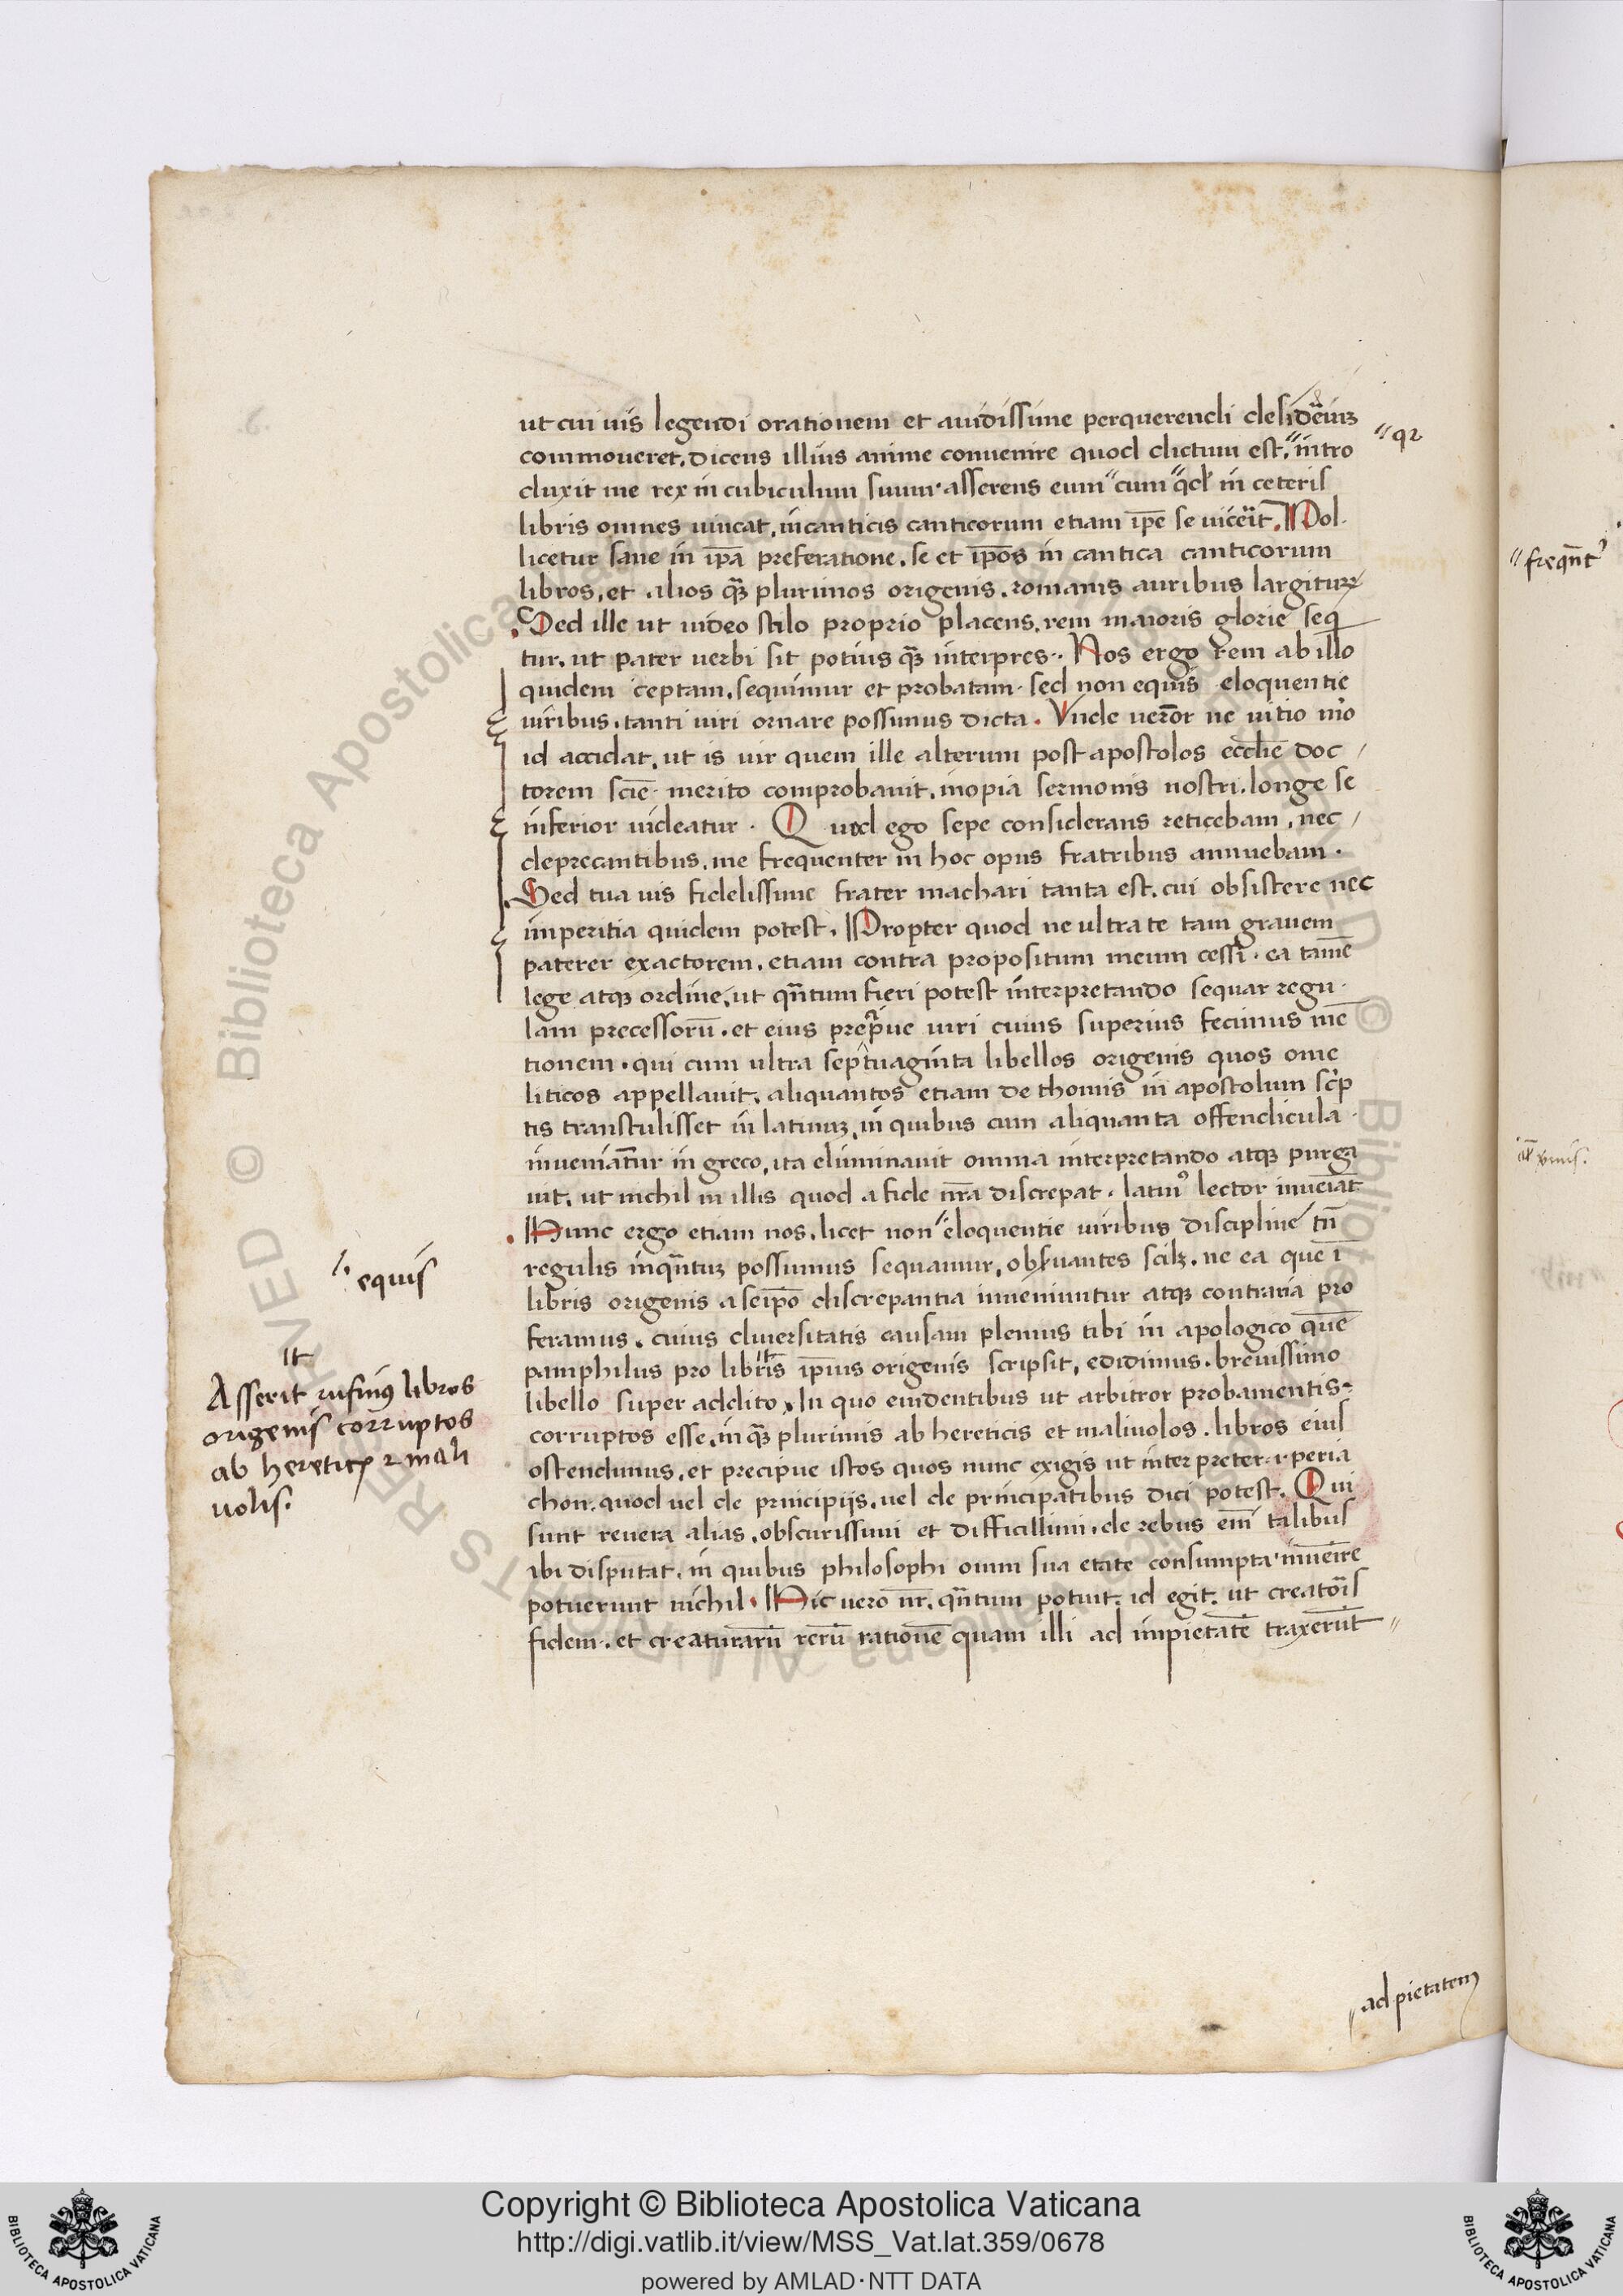 ut cui uis legendi orationem et auidissime perquerendi desidẽiuꝫ
commoueret. dicens illius anime conuenire quod dictum est. intro
duxit me rex in cubiculum suum asserens eum cum qd in ceteris
libris omnes uincat, in canticis canticorum etiam ip̄e se uicẽit. Pol-
licetur sane in ip̄a preferatione. se et ip̄os in cantica canticorum
libros, et alios qȝ plurimos origenis. romanis auribus largiturꝫ
Sed ille ut uideo stilo proprio placens. rem maioris glorie seq
tur. ut pater uerbi sit potius qȝ interpres. Nos ergo rem ab illo
quidem ceptam. sequimur et probatam. sed non equis eloquentie
uiribus. tanti uiri ornare possumus dicta. Vnde uereor ne uitio nr̄o
id accidat. ut is uir quem ille alterum post apostolos eccl̄ie doc
torem scīe merito comprobauit. inopia sermonis nostri. longe se
inferior uideatur. Quod ego sepe considerans reticebam. nec
deprecantibus. me frequenter in hoc opus fratribus annuebam.
Sed tua uis fidelissime frater machari tanta est. cui obsistere nec
imperitia quidem potest. Propter quod ne ultra te tam grauem
paterer exactorem. etiam contra propositum meum cessi. ea tamē
lege atqȝ ordine. ut qn̄tum fieri potest interpretando sequar regu-
lam precessorū. et eius precipue uiri cuius superius fecimus mē
tionem. qui cum ultra septuaginta libellos origenis quos ome
liticos appellauit. aliquantos etiam de thomis in apostolum scrip
tis transtulisset in latinuꝫ, in quibus cum aliquanta offendicula
inueniantur in greco, ita eliminauit omnia interpretando atqȝ purga
uit. ut nichil in illis quod a fide nr̄a discrepat. latin⁹ lector inueiat
Hunc ergo etiam nos. licet non eloquentie uiribus discipline tn̄
regulis inqn̄tuꝫ possumus sequamur, obseruantes scilꝫ. ne ea que ī
libris origenis a seip̄o discrepantia inueniuntur atqȝ contraria pro
feramus. cuius diuersitatis causam plenius tibi in apologico quē
pamphilus pro libris ip̄ius origenis scripsit, edidimus. breuissimo
libello super addito. In quo euidentibus ut arbitror probamentis
corruptos esse. in qȝ plurimis ab hereticis et maliuolos. libros eius
ostendimus. et precipue istos quos nunc exigis ut interpreter .i. peria
chon. quod uel de principijs. uel de principatibus dici potest. Qui
sunt reuera alias. obscurissimi et difficillimi. de rebus eni talibus
ibi disputat. in quibus philosophi omni sua etate consumpta inuenire
potuerunt nichil. Hic uero nr̄. qn̄tum potuit. id egit. ut creatoris
fidem. et creaturarū rerū rationē quam illi ad impietatē traxerūt
qꝛ
equis
Asserit rufin⁹ libros
origenis corruptos
ab heretic ꝛ mali
uolis.
ad pietatem
freqn̄t
Copyright © Biblioteca Apostolica Vaticana
http://digi.vatlib.it/view/MSS_Vat.lat.359/0678
powered by AMLAD·NTT DATA
BIBLIOTECA APOSTOLICA VATICANA
BIBLIOTECA APOSTOLICA VATICANA